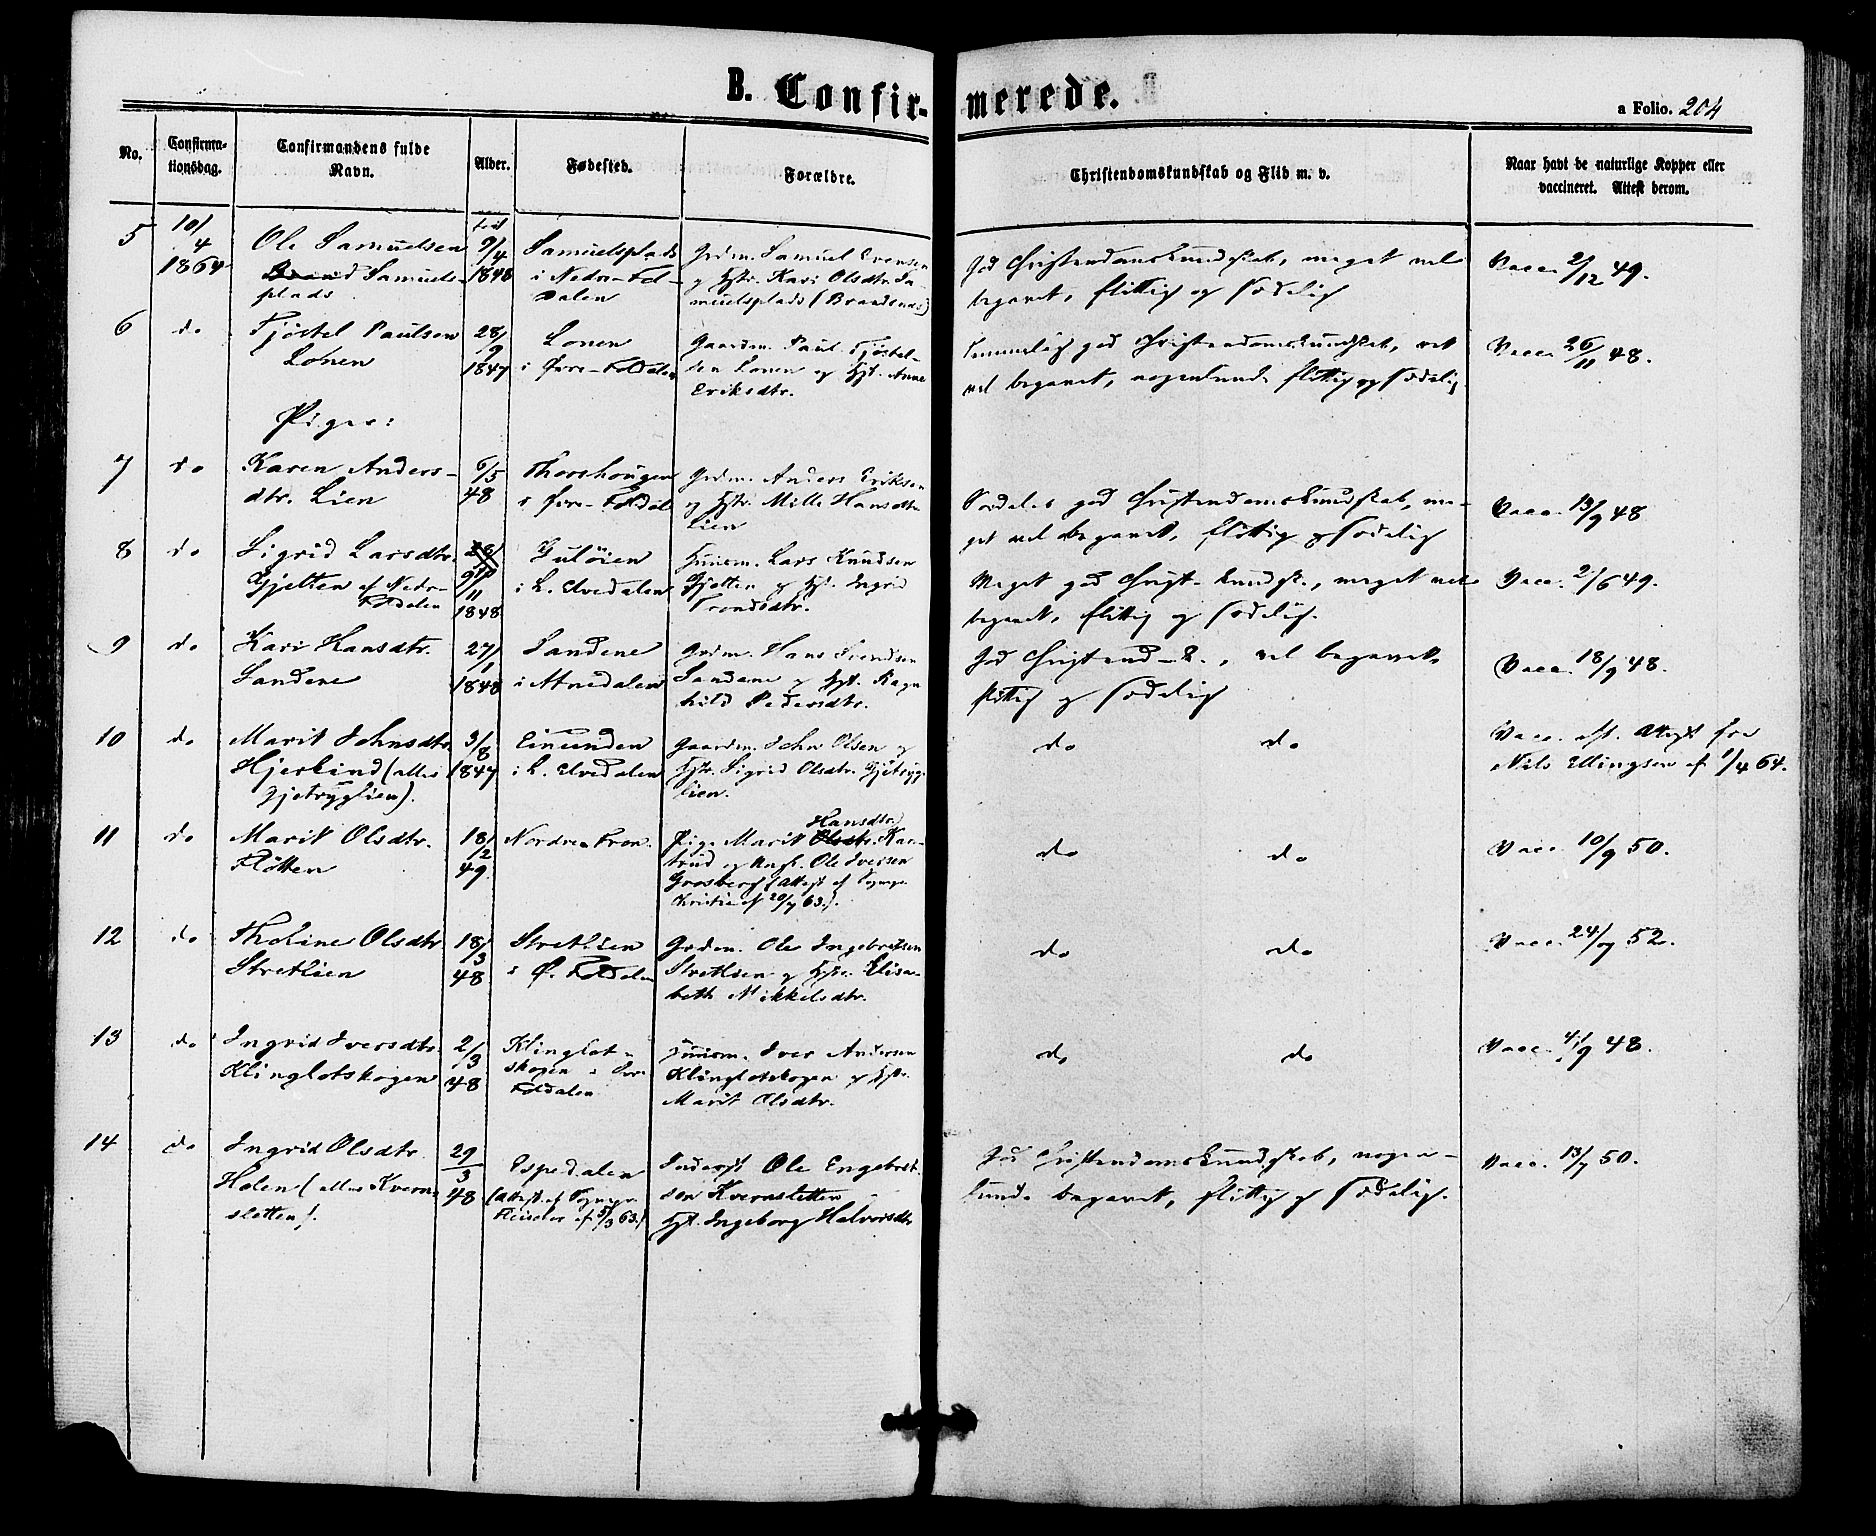 B. Confir-merede.
a Folio. 204
No.
Confirma-
tionsdag.
Confirmandens fulde
Navn.
Alder.
Fødested.
Forældre.
Christendomskundskab og Flid m. v.
Naar havt de naturlige Kopper eller
vaccineret. Attest derom.
5
10/4
1864
Ole Samuelsen
Samuels-
plads
9/4
1848
Samuelsplads
i Nedre-Fol-
dalen
Grdm. Samuel Evensen
og Hstr. Kari Olsdtr. Sa-
muelsplads (Brandsnes)
God Christendomskundskab, meget vel
begavet, flittig og sædelig
Vacc. 2/12 49.
6
do
Tjøstel Paulsen
Lonen
28/9
1847
Lonen
i Øvre-Foldalen
Gaardm. Paul Tjøstel-
sen Lonen og Hst. Anne
Eriksdtr.
Temmelig god Christendomskundskab, ret
vel begavet, nogenlunde flittig og sædelig
Vacc. 26/11 48.
Piger:
7
do
Karen Anders-
dtr. Lien
6/5
48
Thorshougen
i Øvre-Foldal
Grdm. Anders Eriksen
og Hstr. Mille Hansdtr.
Lien
Særdeles god Christendomskundskab, me-
get vel begavet, flittig og sædelig
Vacc. 13/9 48
8
do
Sigrid Larsdtr.
Gjelten af Nedre-
Foldalen
9/11
1848
Guløien
i L. Elvedalen
Huusm. Lars Knudsen
Gjelten og Hst. Ingrid
Trondsdtr.
Meget god Christ. kundsk., meget vel
begavet, flittig og sædelig.
Vacc. 2/6 49.
9
do
Kari Hansdtr.
Sandene
27/1
1848
Sandene
i Atnedalen
Grdm. Hans Svendsen
Sandene og Hst. Ragn
hild Pedersdtr.
God Christend.-K., vel begavet,
flittig og sædelig
Vacc. 18/9 48.
10
do
Marit Johnsdtr.
Hjerkind (eller
Gjetryglien).
3/8
1847
Einunden
i L. Elvedalen
Gaardm. John Olsen og
Hstr. Sigrid Olsdtr. Gjetryg-
lien.
do do
Vacc. eft. Attest fra
Nils Ellingsen af 1/4 64.
11
do
Marit Olsdtr.
Fløtten
18/2
49
Nordre Fron.
Hansdtr.
Pige Marit Olsdtr.
og Ungk. Ole Iversen
Grosberg (Attest af Sognepr.
Christie af 20/7 63.).
do do
Vacc. 10/9 50.
12
do
Tholine Olsdtr
Stretlien
18/3
48
Stretlien
i Ø. Foldalen
Grdm. Ole Ingebretsen
Stretlien og Hstr. Elisa-
beth Mikkelsdtr.
do do
Vacc. 24/9 52.
13
do
Ingrid Iversdtr.
Klingletskogen
2/3
48
Klinglet-
skogen i
Foldalen
Huusm. Iver Andersen
Klingletskogen og Hstr.
Marit Olsdtr.
do do
Vacc. 4/9 48.
14
do
Ingrid Olsdtr.
Holen (eller Kvern-
sletten).
29/3
48
Espedalen
(Attest af Sognepr.
Fleischer af 5/3 63.)
Inderst Ole Engebret-
sen Kvernsletten
Hst. Ingeborg Halvorsdtr
God Christendomskundskab, nogen-
lunde begavet, flittig og sædelig.
Vacc. 13/7 50.